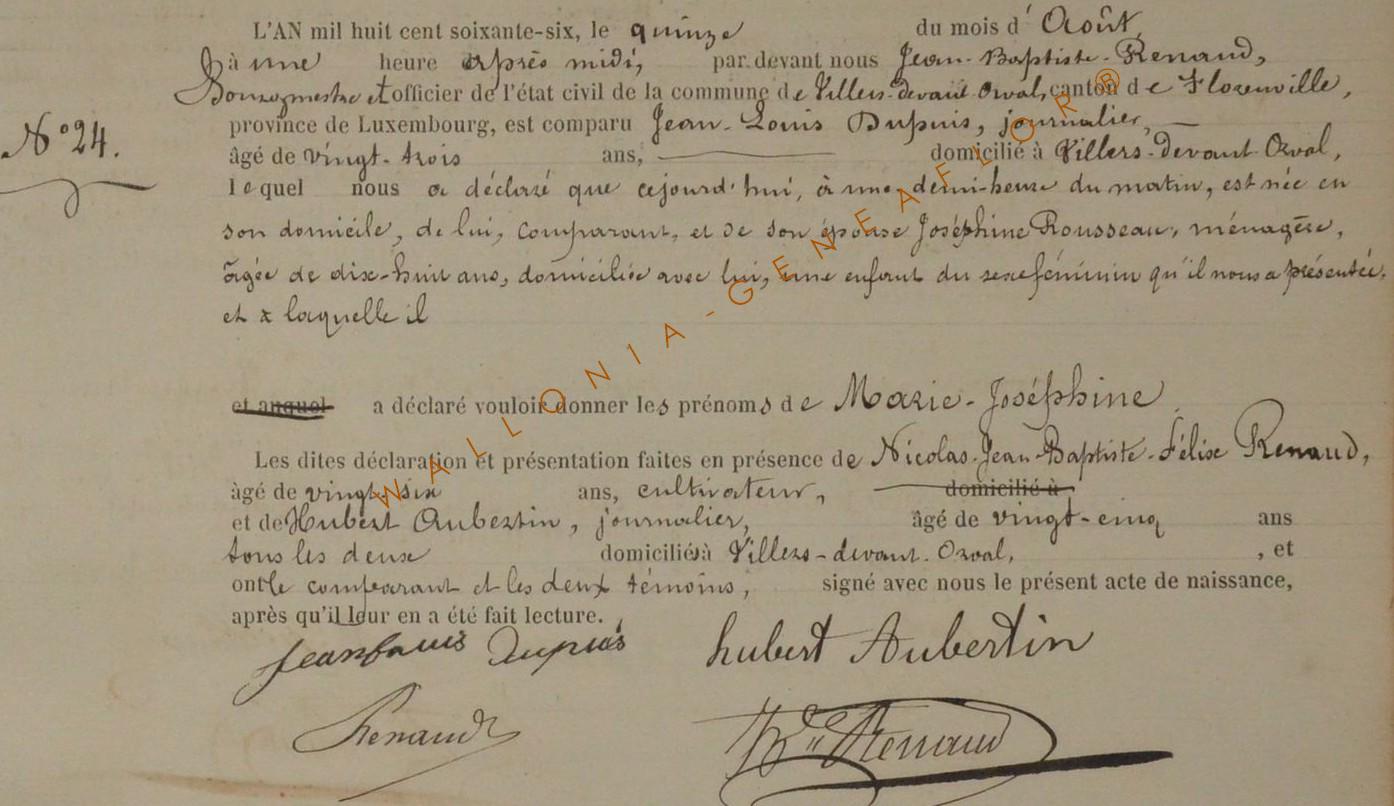 L'AN mil huit cent soixante-six, le quinze du mois d' Août,
à une heure après midi, par devant nous Jean-Baptiste-Renaud,
Bourgmestre et officier de l'état civil de la commune de Villers-devant-Orval, canton de Florenville,
province de Luxembourg, est comparu Jean-Louis Dupuis, journalier,
N° 24.
âgé de vingt-trois ans, domicilié à Villers-devant-Orval,
lequel nous a déclaré que cejourd'hui, à une demi-heure du matin, est née en
son domicile, de lui, comparant, et de son épouse Joséphine Rousseau, ménagère,
âgée de dix-huit ans, domiciliée avec lui, une enfant du sexe féminin qu'il nous a présentée,
et à laquelle il
et auquel a déclaré vouloir donner les prénoms de Marie-Joséphine
Les dites déclaration et présentation faites en présence de Nicolas-Jean-Baptiste-Félix Renaud,
âgé de vingt-six ans, cultivateur, domicilié à
et de Hubert Aubertin, journalier, âgé de vingt-cinq ans
tous les deux domiciliés à Villers-devant-Orval, , et
ont le comparant et les deux témoins, signé avec nous le présent acte de naissance,
après qu'il leur en a été fait lecture.
Jean Louis Dupuis hubert Aubertin
Renaud Renaud
WALLONIA-GENEAFLOR®